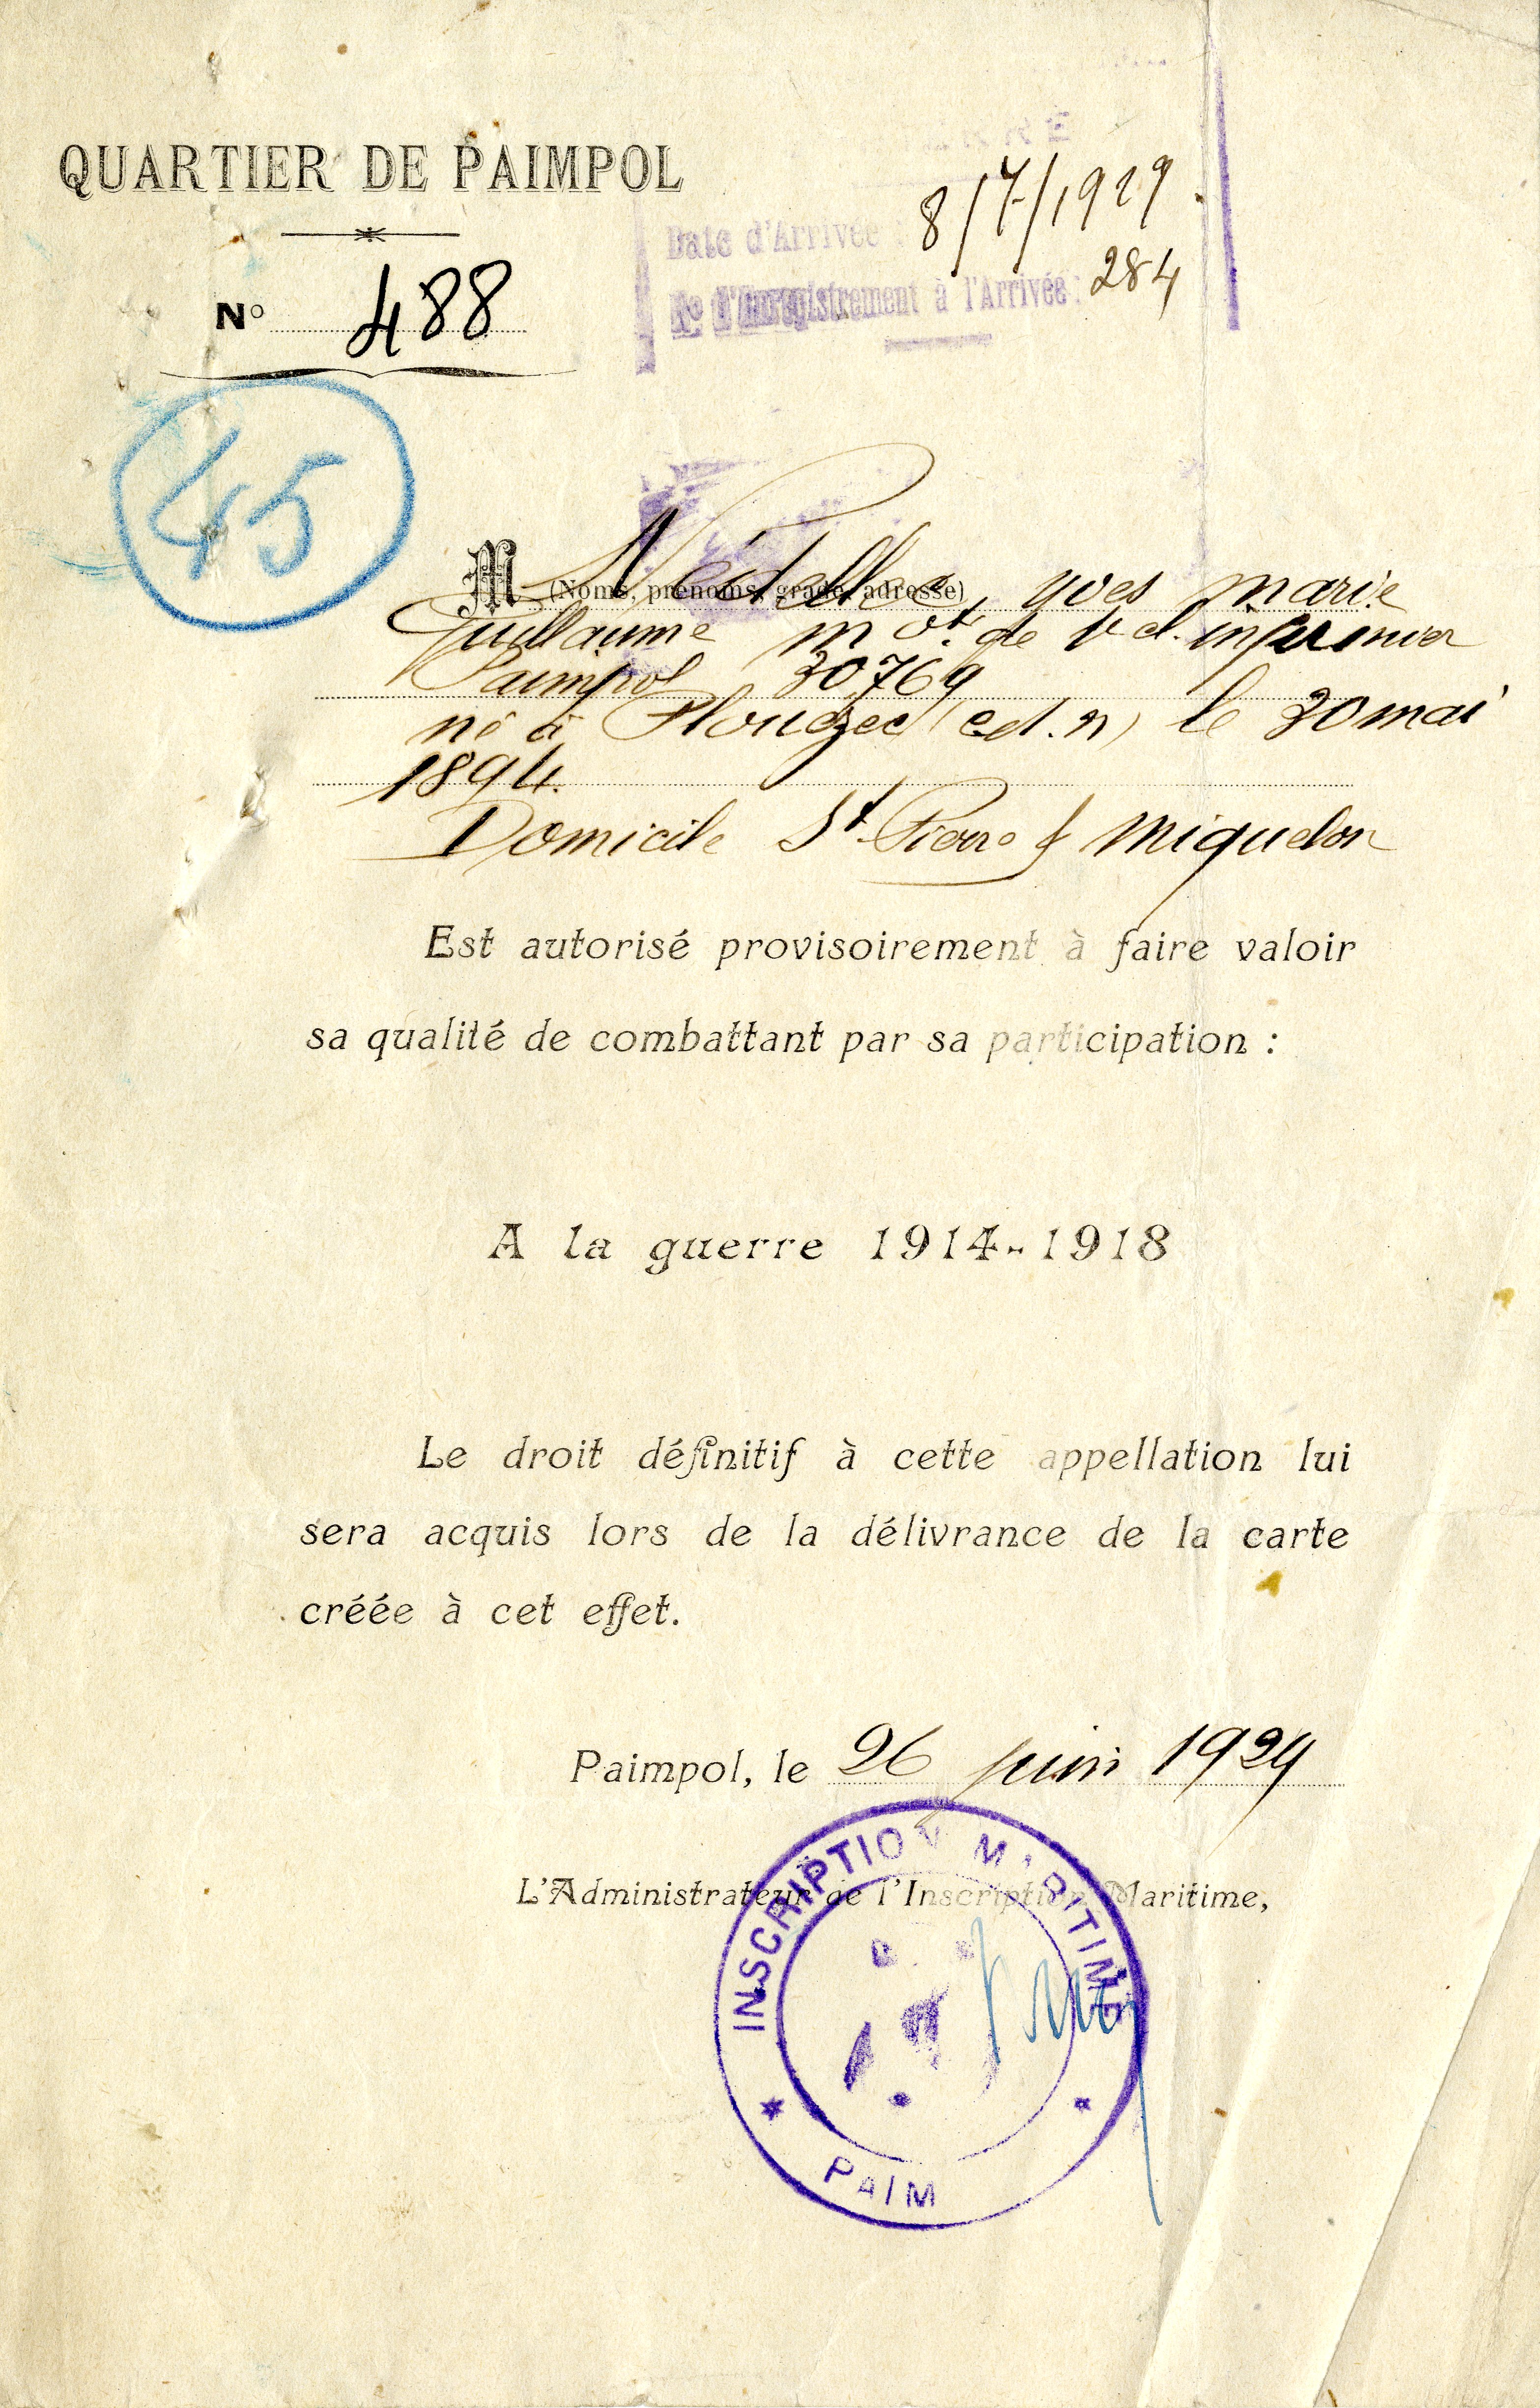 QUARTIER DE PAIMPOL
N° 488
Date d'Arrivée : 8/7/1929
N° d'Enregistrement à l'Arrivée : 284
45
M Nédellec, yves marie
(Noms, prénoms, grade, adresse)
Guillaume mot de infirmier
Paimpol 30769
né à Plouézec (cd.n) le 30 mai
1894.
Domicile St Pierre & Miquelon
Est autorisé provisoirement à faire valoir
sa qualité de combattant par sa participation :
A la guerre 1914-1918
Le droit définitif à cette appellation lui
sera acquis lors de la délivrance de la carte
créée à cet effet.
Paimpol, le 26 juin 1929
L'Administrateur de l'Inscription Maritime,
INSCRIPTION MARITIME
PAIM